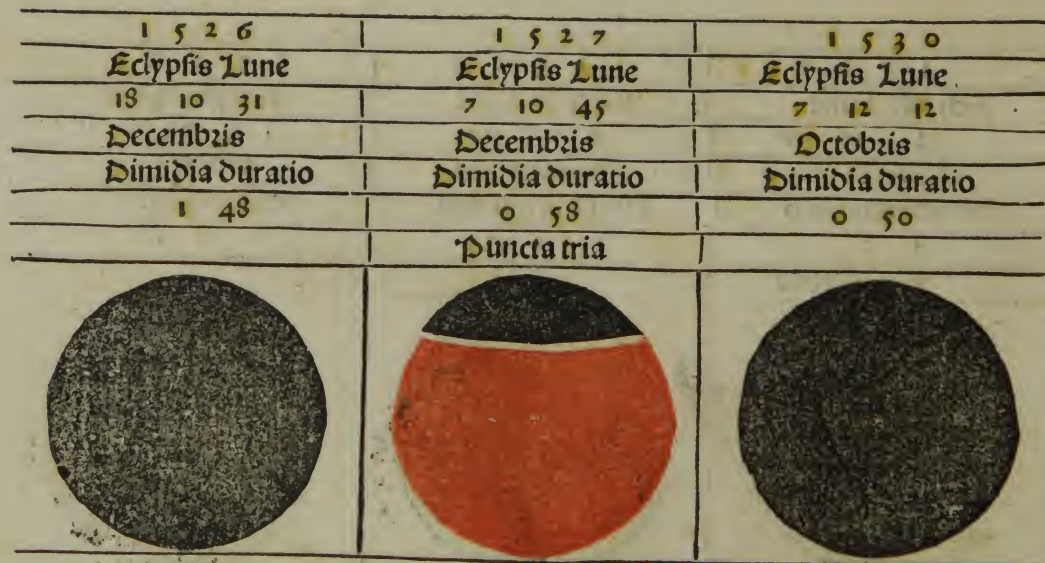 1 5 2 6 | 1 5 2 7 | 1 5 3 0
Eclypsis Lune | Eclypsis Lune | Eclypsis Lune .
18 10 31 | 7 10 45 | 7 12 12
Decembris | Decembris | Octobris
Dimidia duratio | Dimidia duratio | Dimidia duratio
1 48 | 0 58 | 0 50
Puncta tria